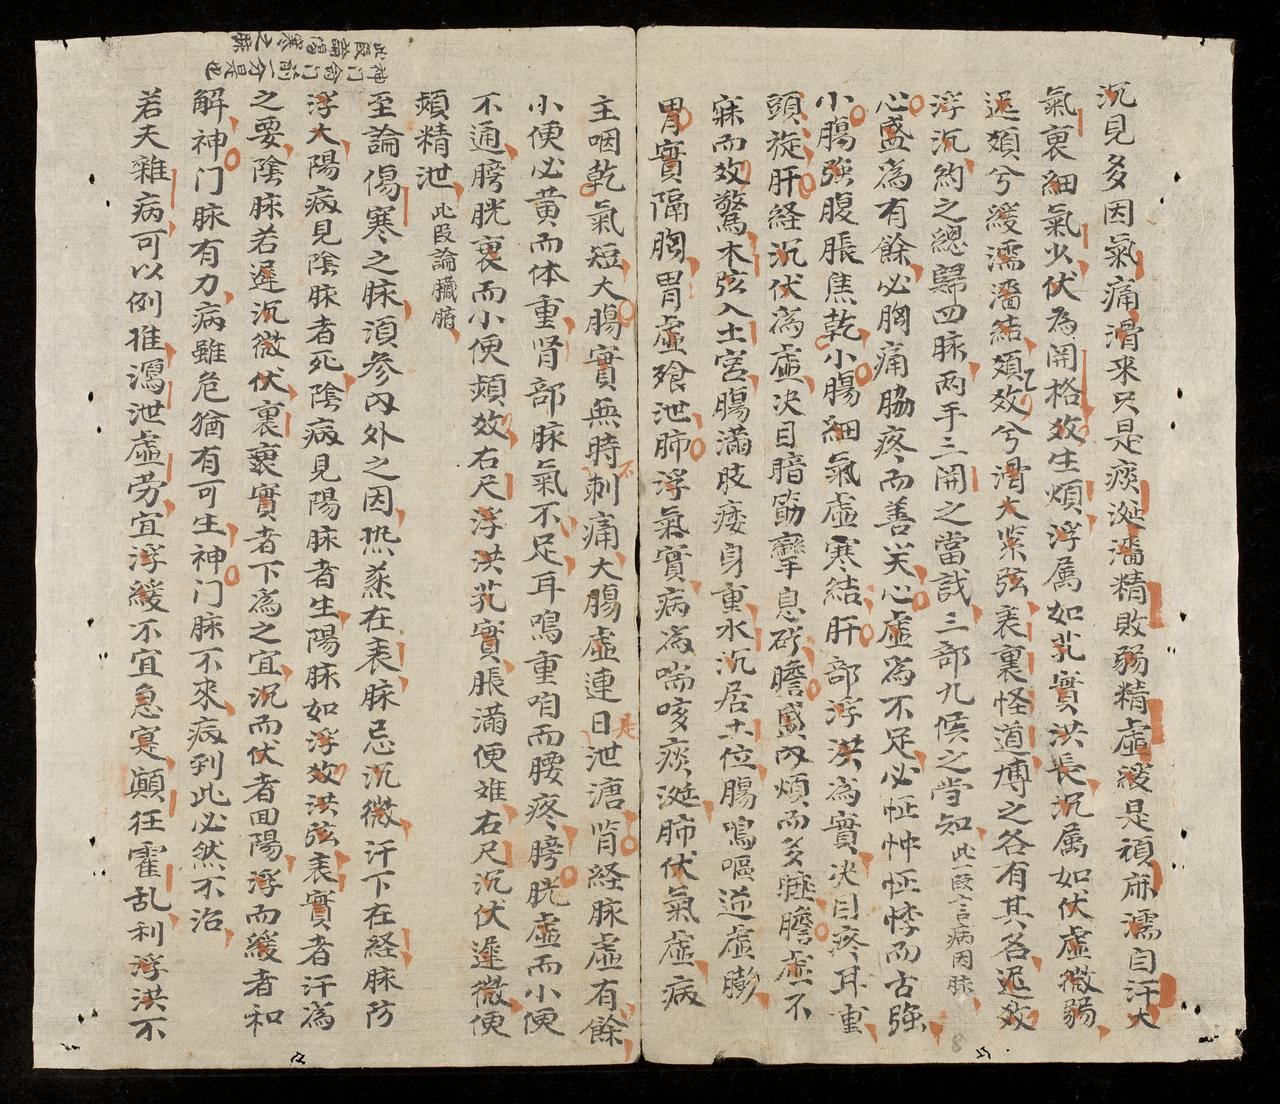 沉見多因氣痛滑来只是痰涎濇精敗弱精虚緩是頑麻濡自汗大
氣裏細氣少伏為関格效生煩浮属如芤實洪長沉属如伏虚微弱
遲頻兮緩濡濇結頻效兮滑大紧弦表裏怪道博之各有其名遲效
浮沉約之總歸四脉两手三関之當試三部九候之當知此段言病因脉
心盛為有餘必胸痛脇疼而善笑心虚為不足必怔忡怔悸而舌強
小腸強腹脹焦乾小腸細氣虚寒結肝部浮洪為實决目疼耳重
頭旋肝経沉伏為虚决目暗筋攣息 膽盛内煩而多睡膽虚不
寐而效驚木弦入土宮腸滿肢痿身重水沉居土位腸鳴嘔逆虚膨
胃實隔胸胃虚飧泄肺浮氣實病為喘咳痰涎肺伏氣虚病
主咽乾氣短大腸實無時不刺痛大腸虚連日是泄溏肾経脉虚有餘
小便必黄而体重肾部脉氣不足耳鳴重咱而腰疼膀胱虚而小便
不通膀胱裏而小便頻效右尺浮洪芤實脹滿便难右尺沉伏遲微便
頻精泄此段論臟腑
至論傷寒之脉須参内外之因热蒸在表脉忌沉微汗下在経脉防
浮大陽病見陰脉者死陰病見陽脉者生陽脉如浮效洪弦表實者汗為
之要陰脉若遲沉微伏裏裏實者下為之宜沉而伏者回陽浮而緩者和
解神门脉有力病雖危猶有可生神门脉不來病到此必然不治
若夫雜病可以例推瀉泄虚劳宜浮緩不宜急寔顛狂霍乱利浮洪不
此段論傷寒之脉
神门命门前一分是也